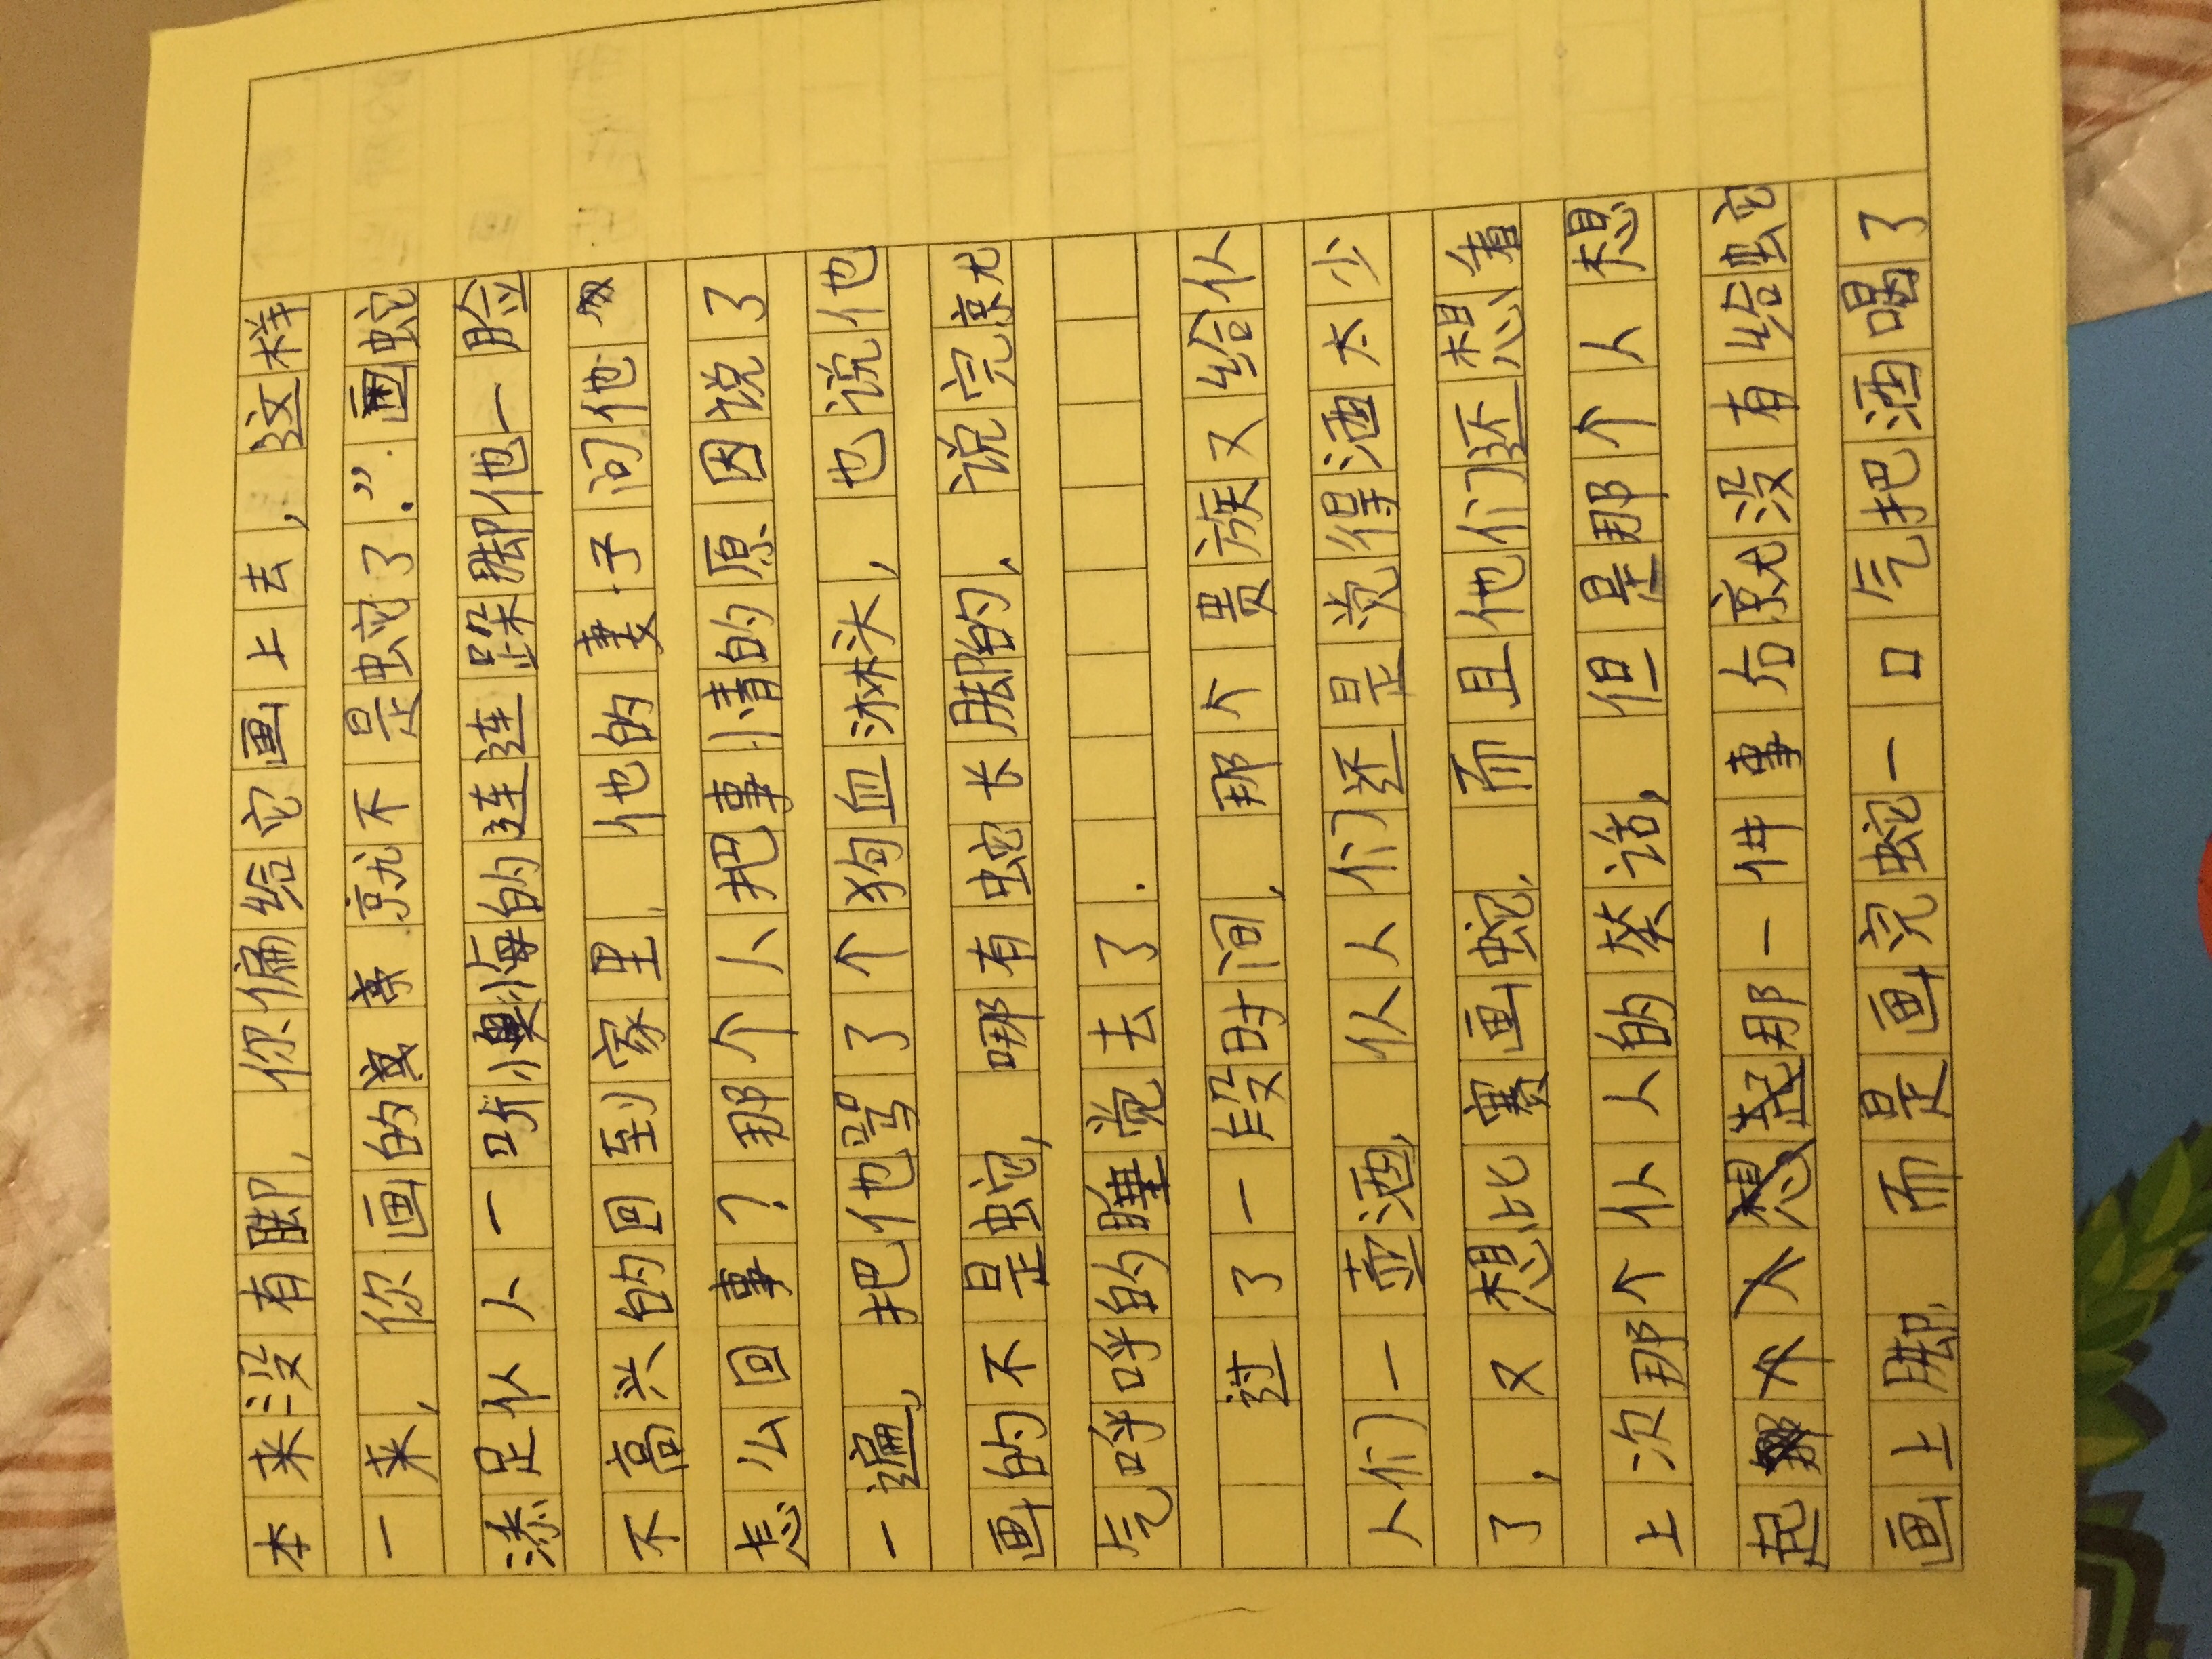 本来没有脚，你偏给它画上去，这样
一来，你画的就不是蛇了.”画蛇
添足仆人一听懊悔的连连跺脚他一脸
不高兴的回到家里，他的妻子问他
怎么回事？那个人把事情的原因说了
一遍，把他骂了个狗血淋头，也说他
画的不是蛇，哪有蛇长脚的，说完就
气呼呼的睡觉去了.
过了一段时间，那个贵族又给仆
人们一壶酒，仆人们还是觉得酒太少
了，又想比赛画蛇，而且他们还想着
上次那个仆人的笑话，但是那个人想
起那一件事后就没有给蛇
画上脚，而是画完蛇一口气把酒喝了